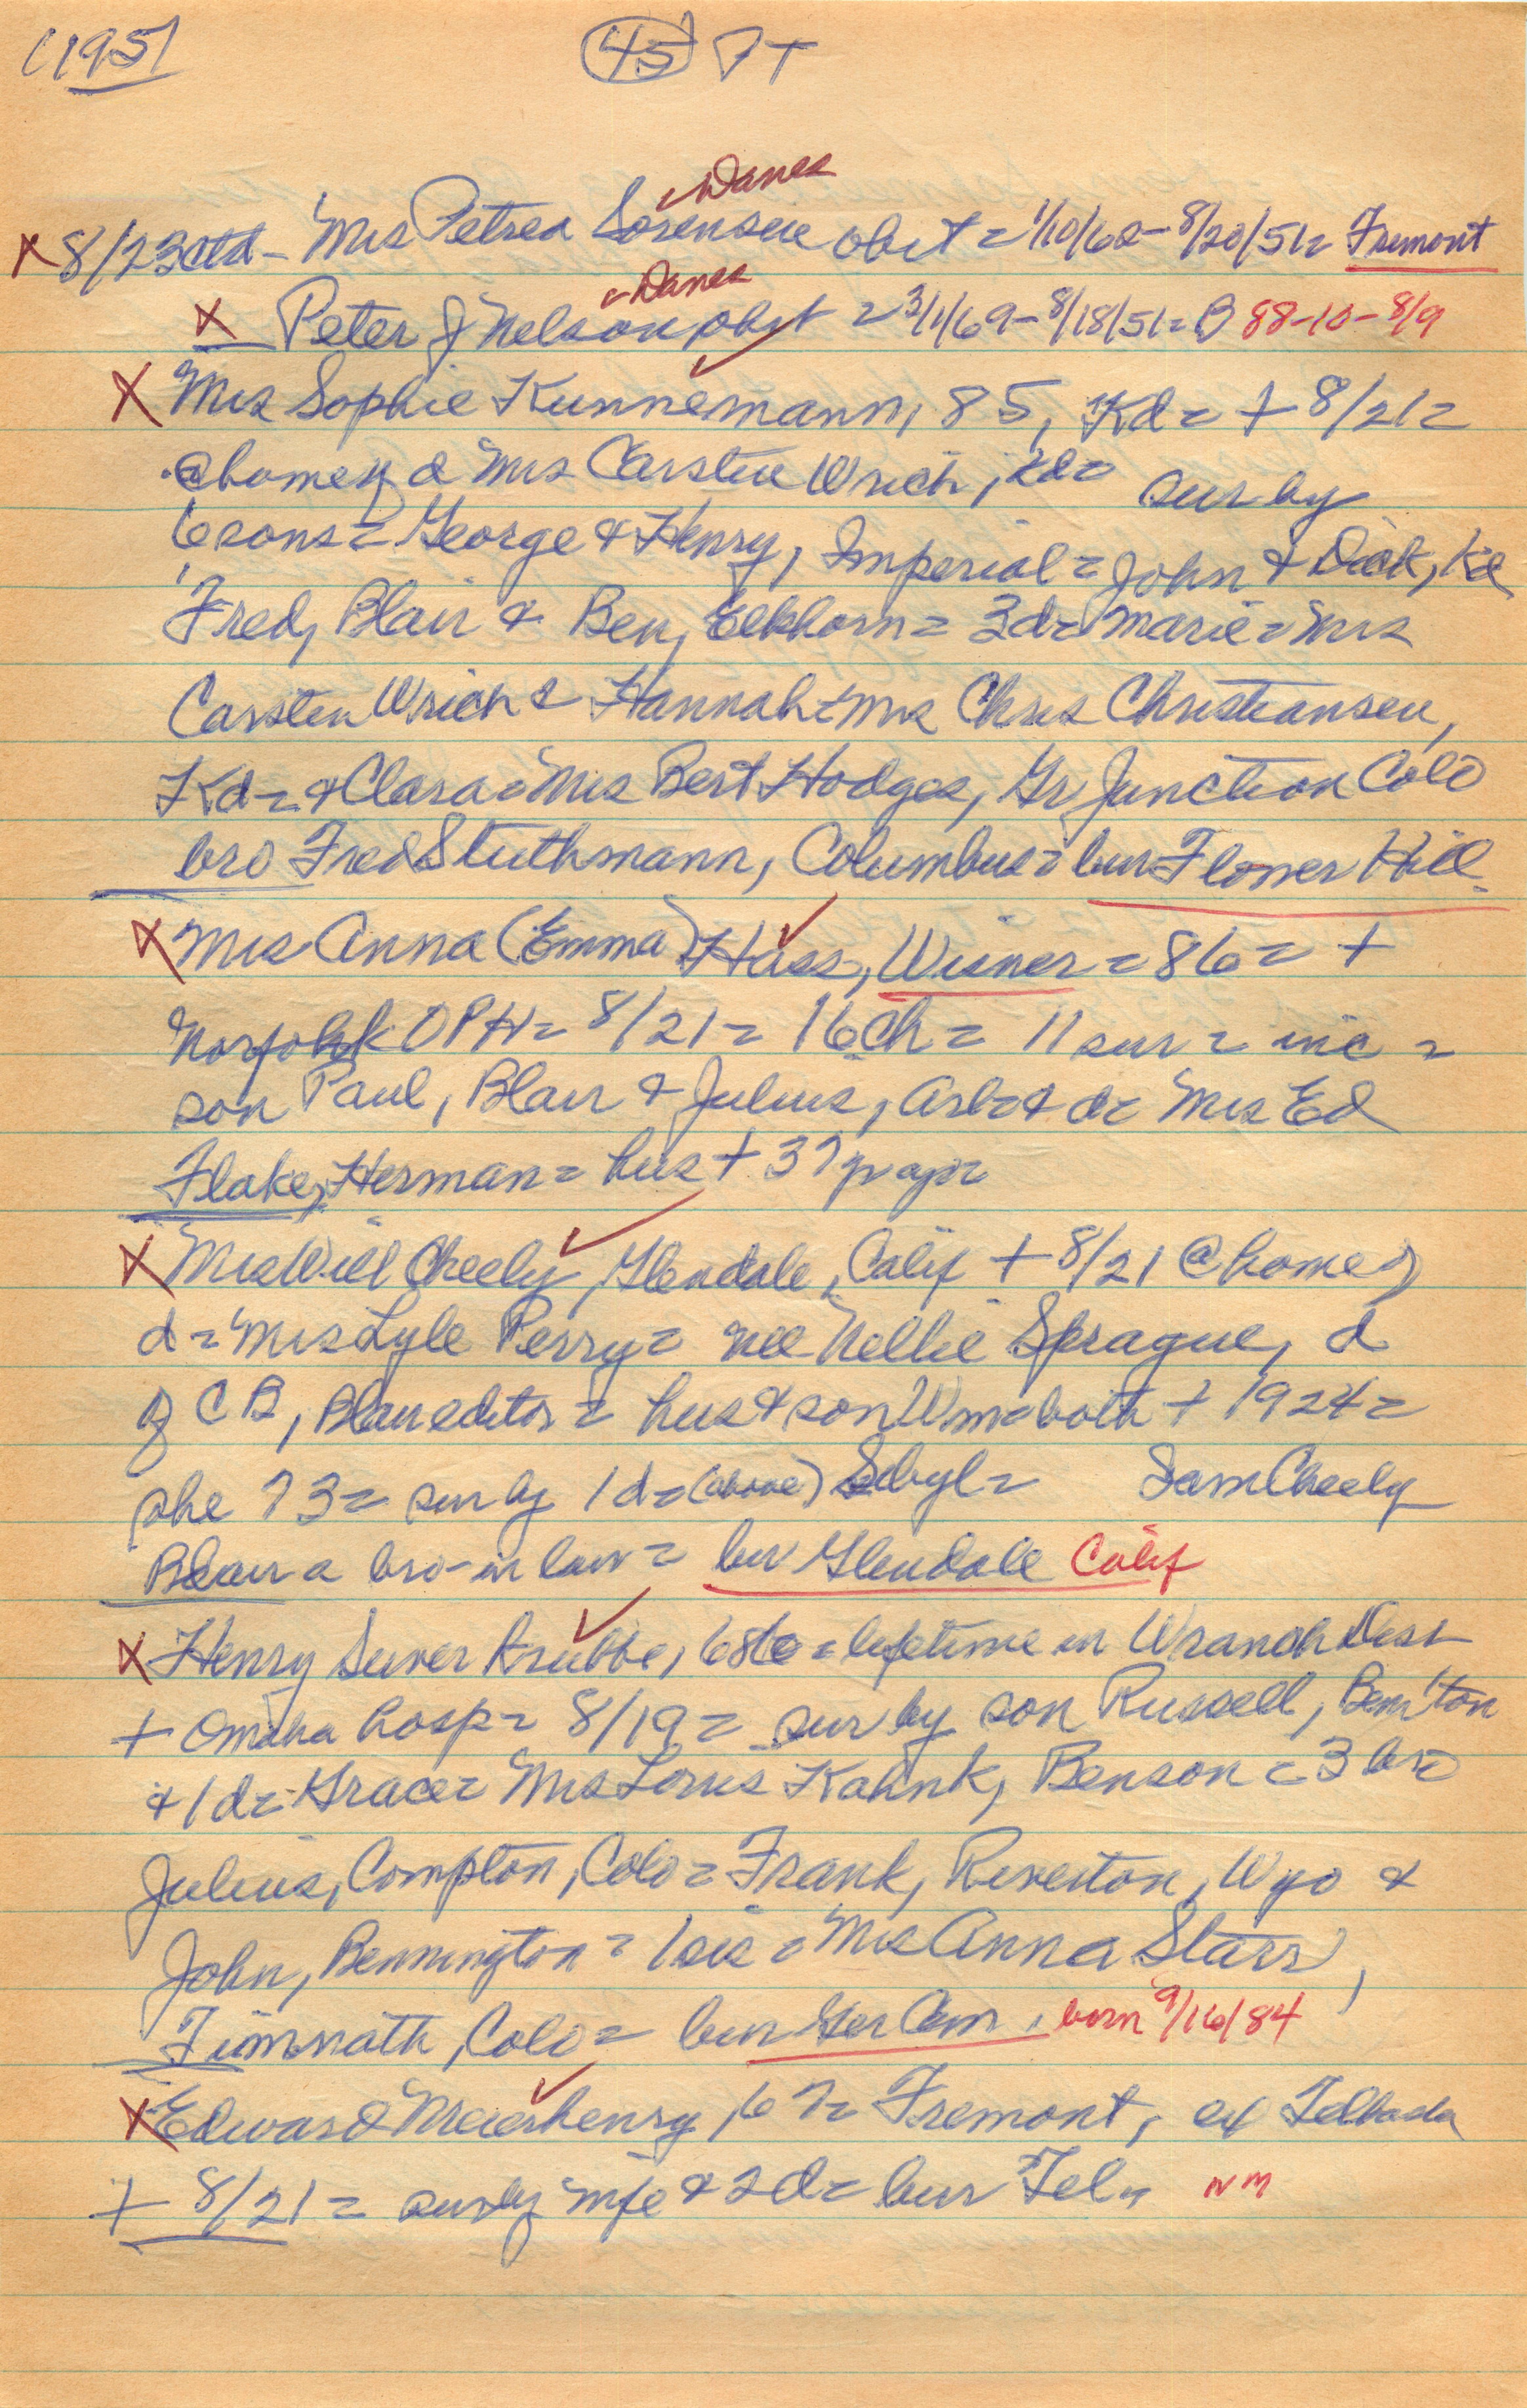 (1951
45 PT
Danes
X 8/23 ctd - Mrs Petrea Sorensen obit = 1/10/62 - 8/20/51 = Fremont
Danes
X Peter J Nelson obit = 3/1/69 - 8/18/51 = B 88-10-8/9
X Mrs Sophie Kunnemann, 85, Kd = + 8/21 =
@ home of d Mrs Carsten Wrich, Kd = sur by
6 sons = George & Henry, Imperial = John & Dick, Kd
Fred, Blair & Ben, Elkhorn = 3d = Marie = Mrs
Carsten Wrich & Hannah = Mrs Chris Christiansen,
Kd = & Clara = Mrs Bert Hodges, Gr Junction Colo
bro Fred Stuthmann, Columbus = bur Flower Hill
X Mrs Anna (Emma) Hass, Wisner = 86 = +
Norfolk OPH = 8/21 = 16 ch = 11 sur = inc =
son Paul, Blair & Julius, Arl = & d = Mrs Ed
Flake, Herman = hus + 37 yr ago =
X Mrs Will Cheely, Glendale, Calif + 8/21 @ home of
d = Mrs Lyle Perry = nee Nellie Sprague, d
of C B, Blair editor = hus & son Wm = both + 1924 =
she 73 = sur by 1 d = (above) Sibyl = Sam Cheely
Blair a bro-in law = bur Glendale Calif
X Henry Suver Krubbe, 66 = lifetime in Wranch Dist
+ Omaha hosp = 8/19 = sur by son Russell, Ben'ton
& 1 d = Grace = Mrs Loris Kahnk, Benson = 3 bro
Julius, Compton, Colo = Frank, Riverton, Wyo &
John, Bennington = 1 sis = Mrs Anna Starr,
Timnath, Colo = bur Ger Cem, born 9/16/84
X Edward Meierhenry, 67 = Fremont, ex Telbasta
+ 8/21 = sur by wife & 2 d = bur Tel = NM